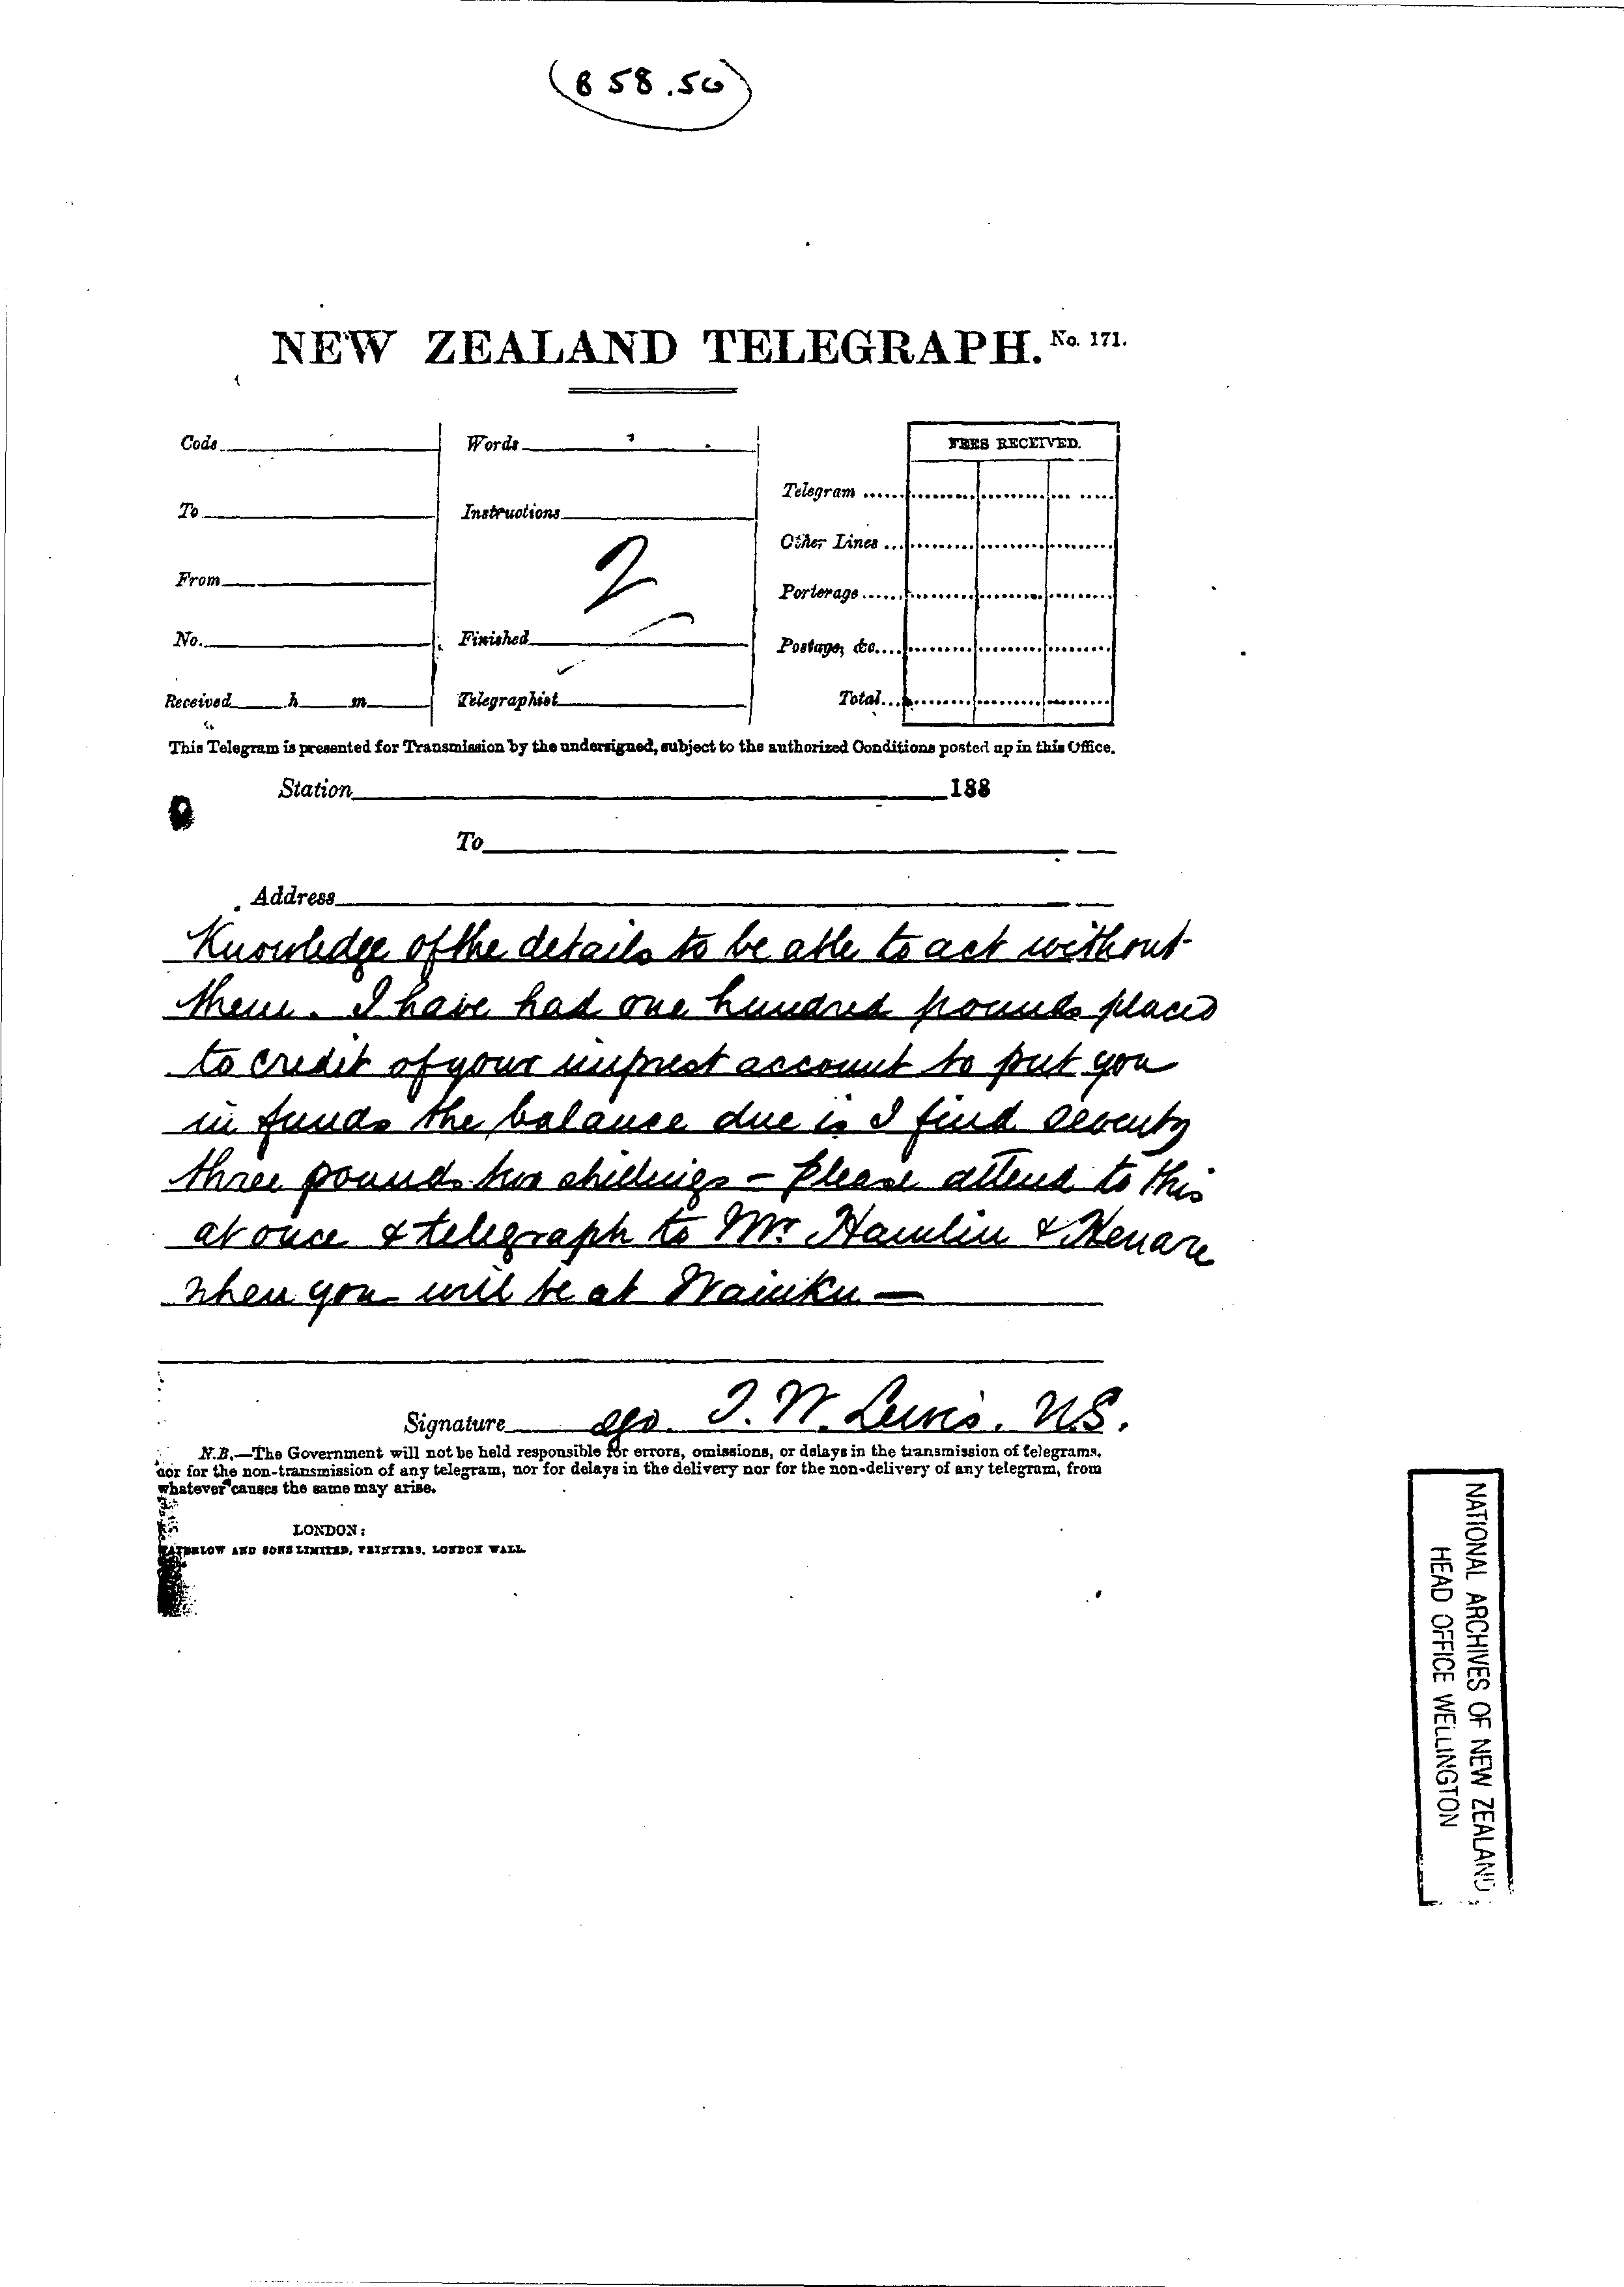 (858.50)
NEW ZEALAND TELEGRAPH. No. 171.
Code
Words
FEES RECEIVED.
To
Instructions
Telegram ......
Other Lines ...
2
From
Porterage ......
No.
Finished
Postage, &c....
Received h m
Telegraphist
Total...
This Telegram is presented for Transmission by the undersigned, subject to the authorized Conditions posted up in this Office.
Station 188
To
Address
Knowledge of the details to be able to act without
them. I have had one hundred pounds placed
to credit of your imprest account to put you
in funds the balance due is I find seventy
three pounds two shillings – Please attend to this
at once & telegraph to Mr Hamlin & Henare
when you will be at Waiuku —
Signature T. W. Lewis. U.S.
N.B.—The Government will not be held responsible for errors, omissions, or delays in the transmission of telegrams,
nor for the non-transmission of any telegram, nor for delays in the delivery nor for the non-delivery of any telegram, from
whatever causes the same may arise.
LONDON:
WATERLOW AND SONS LIMITED, PRINTERS, LONDON WALL.
NATIONAL ARCHIVES OF NEW ZEALAND
HEAD OFFICE WELLINGTON